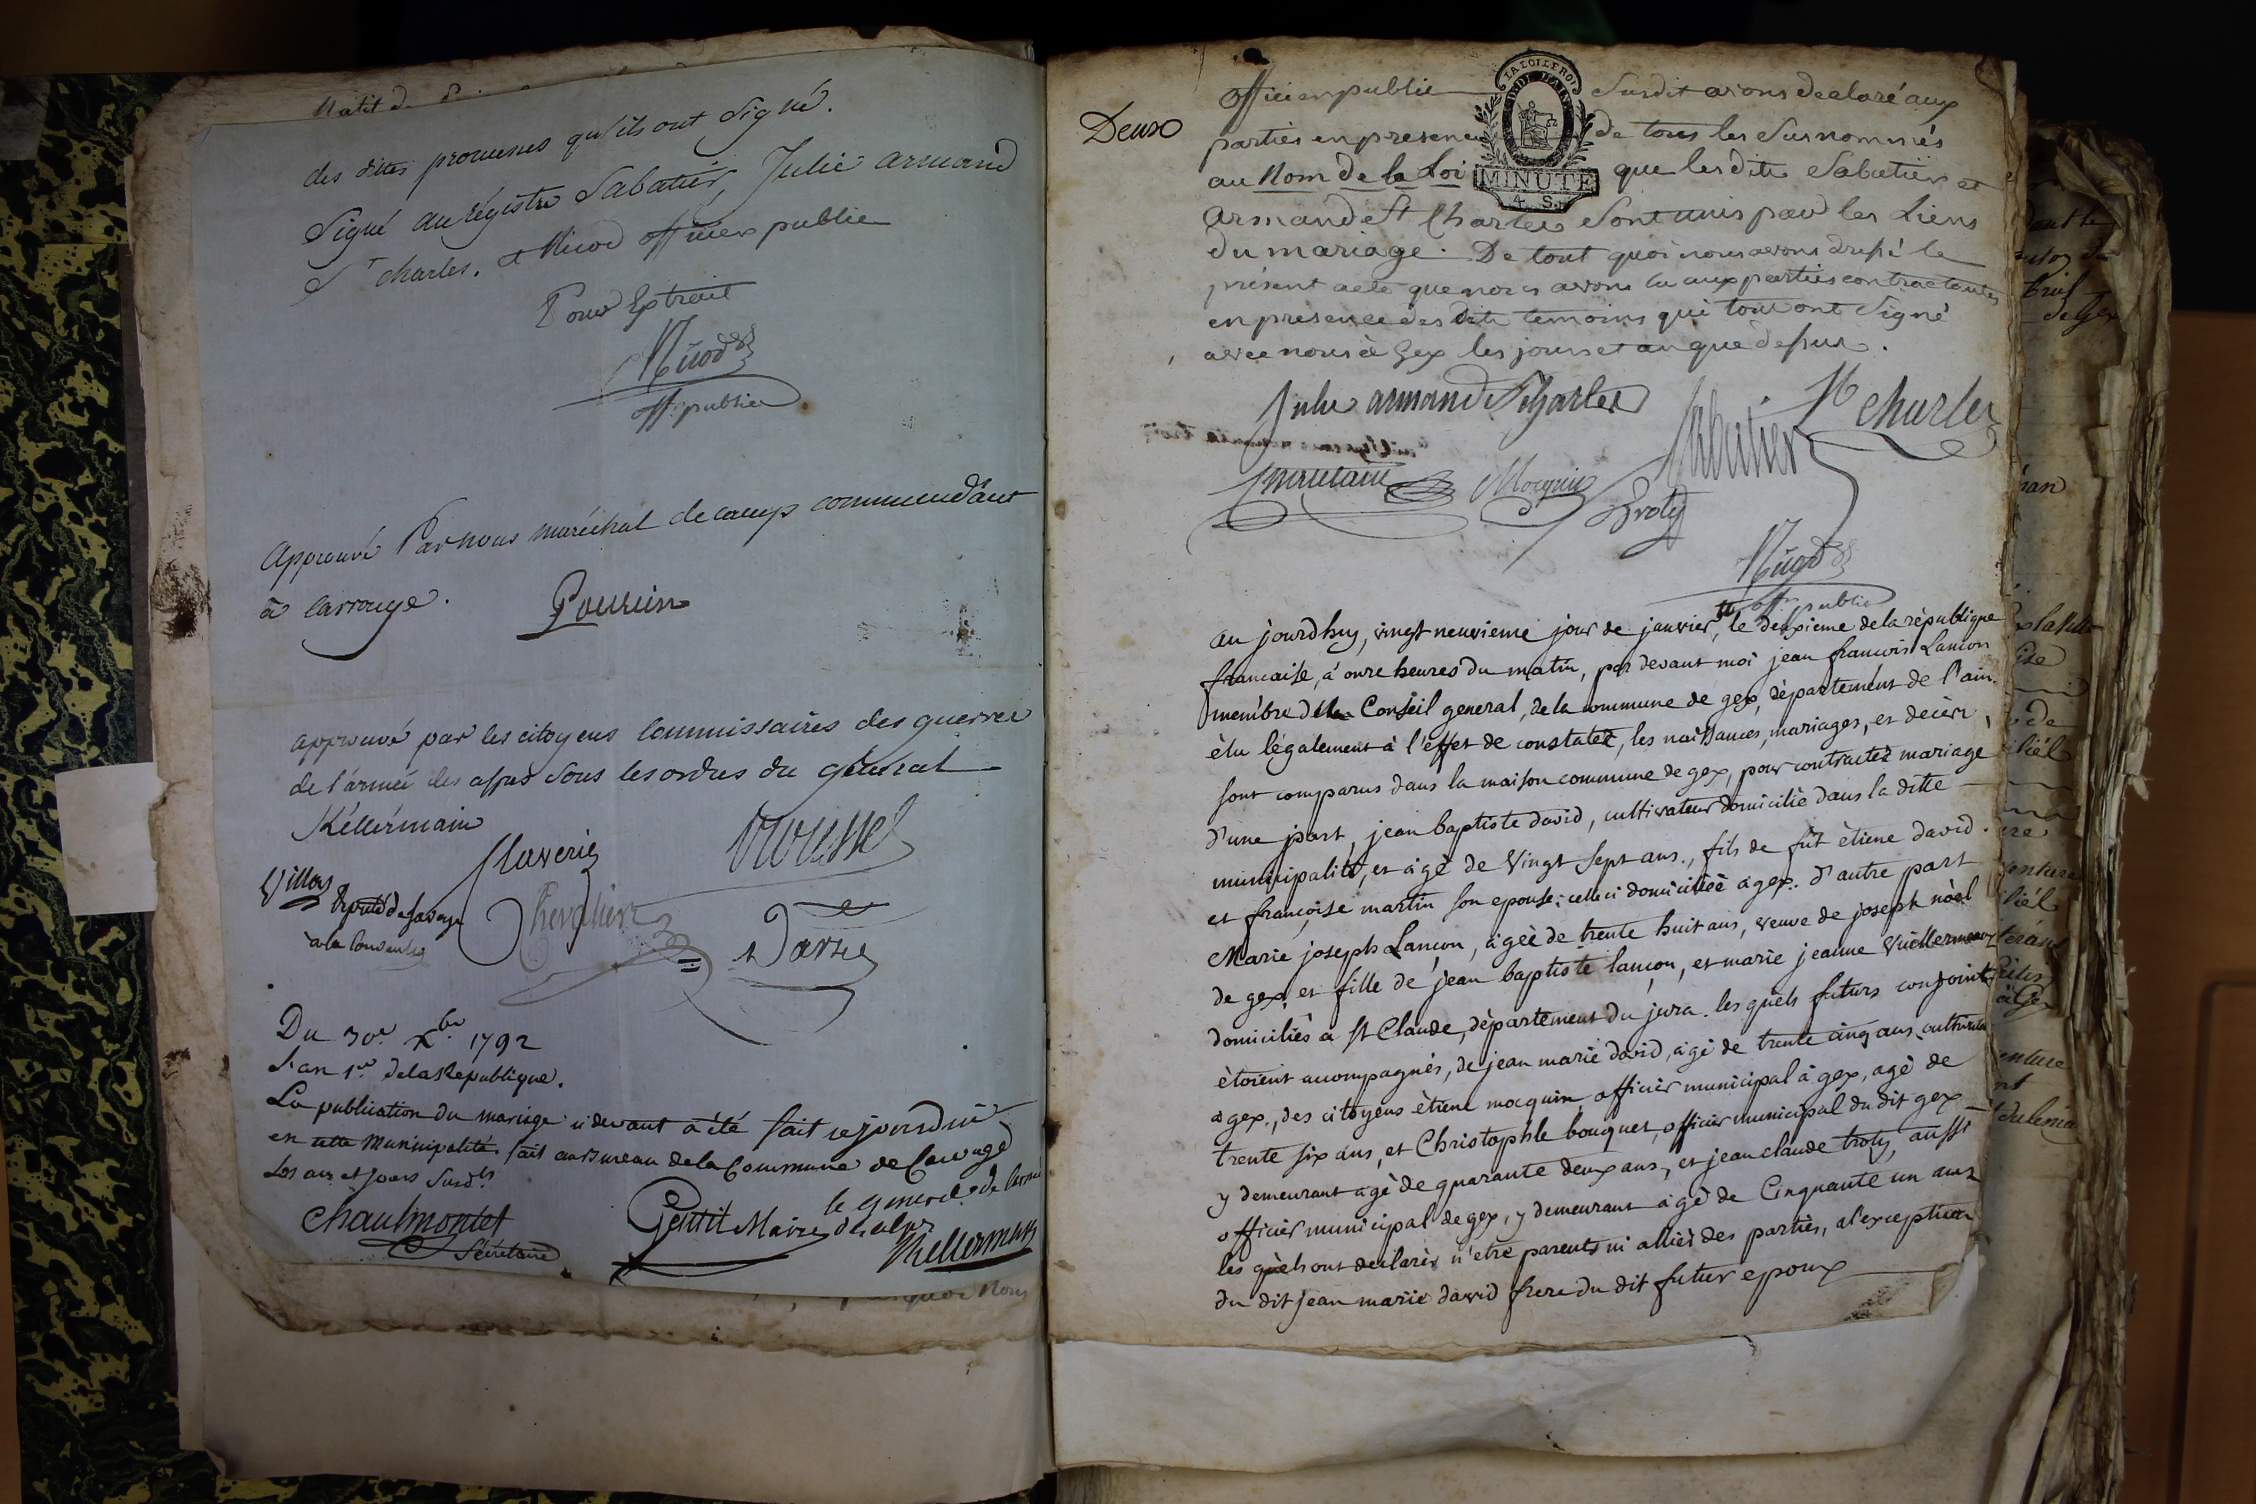 des dittes promesses qu'ils ont signé.
Signé au régistre Sabatier, Julie armand
St charles. et Nicod officier public
Pour Extrait
Nicod
off. public
approuvé Par nous maréchal de camp commendant
à Carrouge.
Pouein
approuvé par les citoyens Commissaires des guerres
de l'armée des alpes sous les ordres du général
Kéllermain
Villars
député de Savoye
à la Convention
Claverie
Chevalier
Rousse
Darru
Du 30e Xbre 1792
L'an 1er de la Republique.
La publication du mariage ci devant à été fait ce jourd'hui
en cette Municipalité. fait au Bureau de la Commune de Carouge
Les an et jours susdts
Chaulmontet
Sécrétaire
Gentil Maire
le general de l'armée
des alpes
Kellermann
Deux
LA LOI LE ROI
MINUTE
4. S.
officier public susdit avons declaré aux
parties en presence de tous les susnommés
au Nom de la Loi que lesdits Sabatier et
Armand St Charles sont unis par les Liens
du mariage. De tout quoi nous avons dressé le
présent acte que nous avons lu aux parties contractantes
en presence des dits temoins qui tout ont Signé
avec nous à Gex les jours et an que dessus.
Julie armand St charles
Sabatier
St charles
Mocquin
Troty
Nicod
off. public
au jourdhuy, vingt neuvieme jour de janvier, le deuxieme de la république
francaise, à onze heures du matin, par devant moi jean francois Lançon
membre du Conseil general, de la commune de gex, département de l'ain.
élu légalement à l'effet de constater, les naissances, mariages, et décès,
sont comparus dans la maison commune de gex, pour contracter mariage
d'une part, jean baptiste david, cultivateur domicilié dans la ditte
municipalité, et agé de vingt sept ans., fils de fût étiene david.
et françoise martin son epouse; celle ci domiciliée a gex. d'autre part
Marie joseph Lançon, agée de trente huit ans, veuve de joseph nöel
de gex, et fille de jean baptiste lançon, et marie jeanne vuillermoz
domiciliés a St Claude, département du jura. les quels futurs conjoints
étoient accompagnés, de jean marie david, agé de trente cinq ans, cultivateur
a gex., des citoyens étiene mocquin officier municipal à gex, agé de
trente six ans, et Christophle bouquet, officier municipal du dit gex
y demeurant agé de quarante deux ans, et jean claude troty, aussi
officier municipal de gex, y demeurant agé de Cinquante un ans
les quels ont declarés n'etre parents ni alliés des parties, a l'exception
du dit jean marie david frere du dit futur epoux